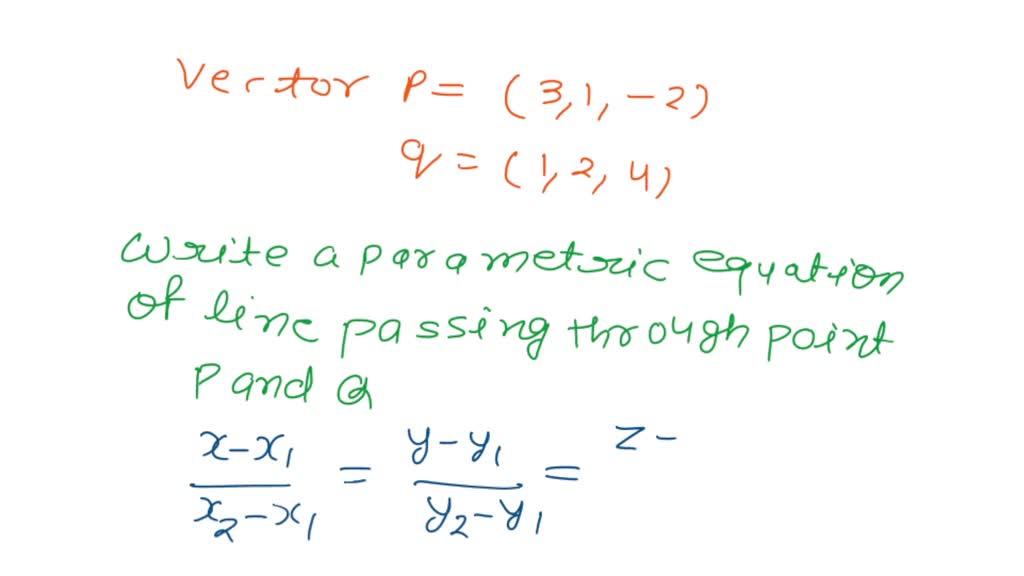 Vector P = (3, 1, -2)
q = (1, 2, 4)
Write a parametric equation
of line passing through point
P and Q
x-x₁ / x₂-x₁ = y-y₁ / y₂-y₁ = z-